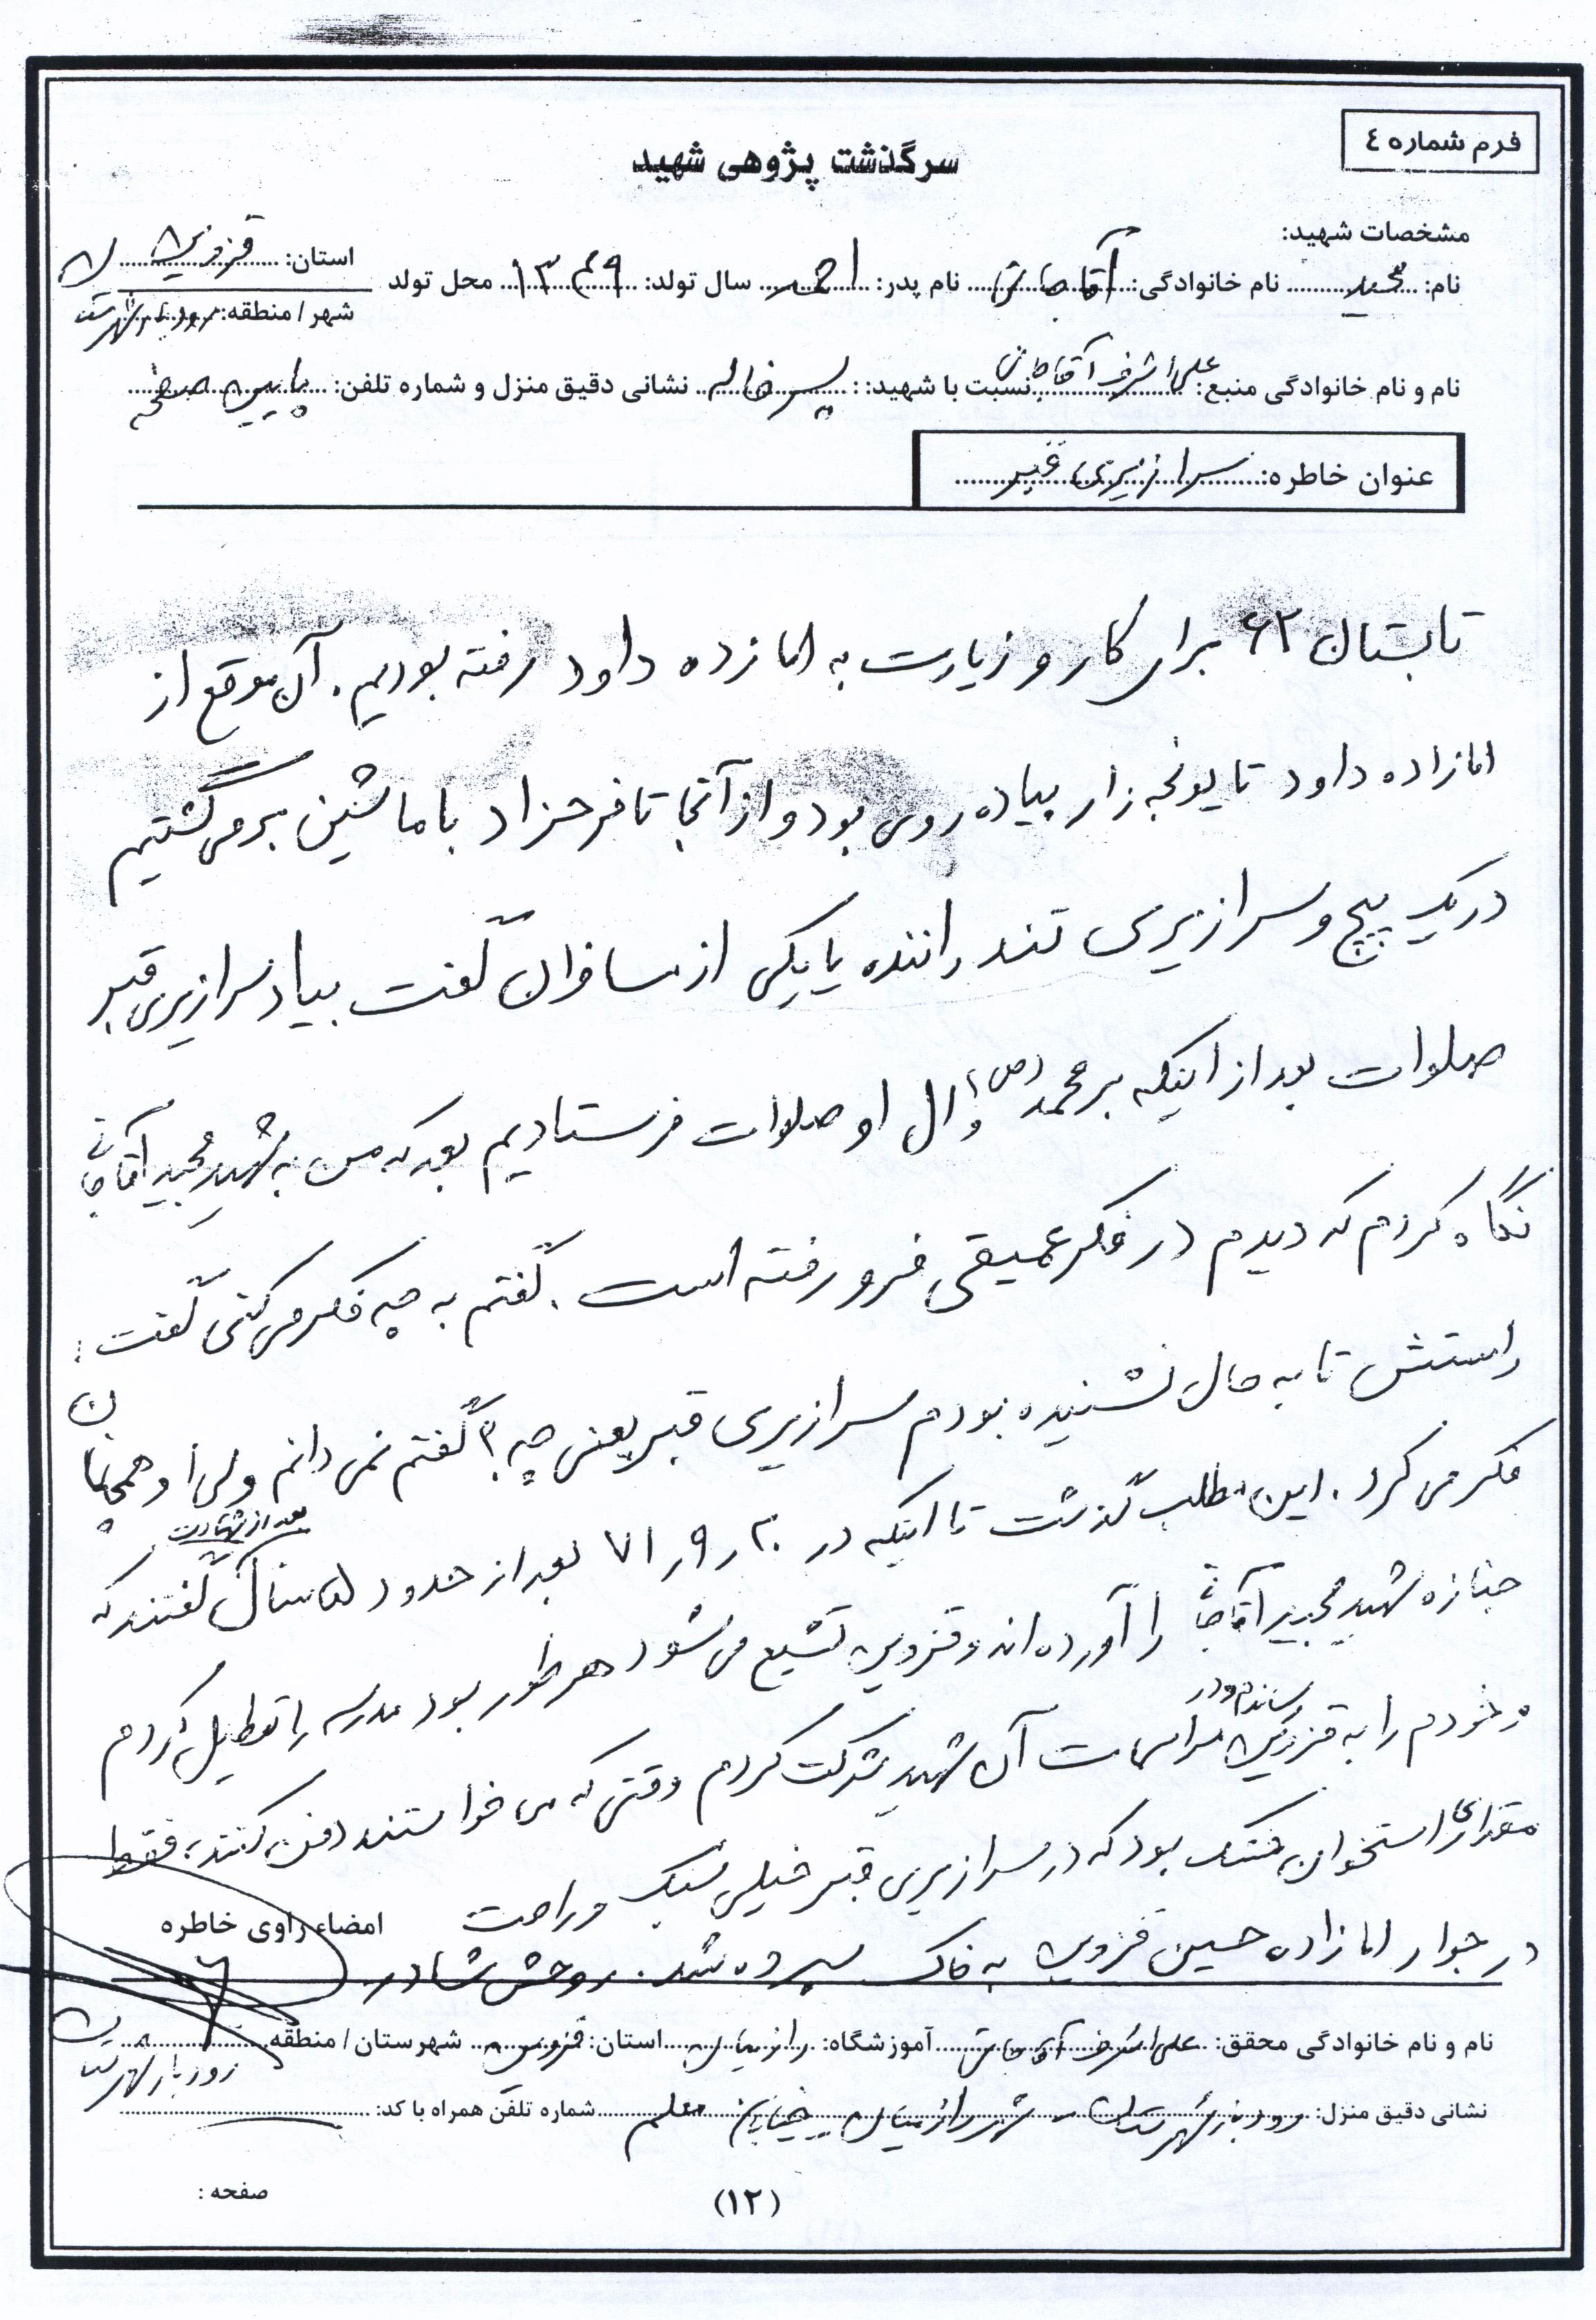 فرم شماره ٤
سرگذشت پژوهی شهید
مشخصات شهید:
نام: مجید نام خانوادگی: آقاجانی نام پدر: احمد سال تولد: ۱۳۴۹ محل تولد
استان: قزوین
شهر / منطقه: رودبار شهرستان
نام و نام خانوادگی منبع: علی اشرف آقاجانی نسبت با شهید: : پسر خاله نشانی دقیق منزل و شماره تلفن: پایین صفحه
عنوان خاطره: سرازیری قبر
تابستان ۶۲ برای کار و زیارت به امازده داود رفته بودیم. آن موقع از
امازاده داود تا یونجه زار پیاده روی بود و از آنجا تا فرحزاد با ماشین برمی گشتیم
در یک پیچ و سرازیری تند راننده یا یکی از مسافران گفت بیاد سرازیری قبر
صلوات بعد از اینکه بر محمد (ص) و ال او صلوات فرستادیم بعد که من به شهید مجید آقاجانی
نگاه کردم که دیدم در فکر عمیقی فرو رفته است. گفتم به چه فکر می کنی گفت:
راستش تا به حال نشنیده بودم سرازیری قبر یعنی چه؟ گفتم نمی دانم ولی او همچنان
فکر می کرد. این مطلب گذشت تا اینکه در ۷۱٫۹٫۲۰ بعد از حدود ۵ سال بعد از شهادت گفتند که
جنازه شهید مجید آقاجانی را آورده اند و قزوین تشیع می شود هر طور بود مدرسه را تعطیل کردم
و خودم را به قزوین رساندم و در مراسمات آن شهید شرکت کردم وقتی که می خواستند دفن کنند، فقط
مقداری استخوان خشک بود که در سرازیری قبر خیلی سبک و راحت
در جوار امازاده حسین قزوین به خاک سپرده شد. روحش شاد
امضاء راوی خاطره
نام و نام خانوادگی محقق: علی اشرف آقاجانی آموزشگاه: رازمیان استان: قزوین شهرستان / منطقه رودبار شهرستان
نشانی دقیق منزل: رودبار شهرستان - شهر رازمیان خیابان معلم شماره تلفن همراه با کد:
صفحه :
(۱۲)